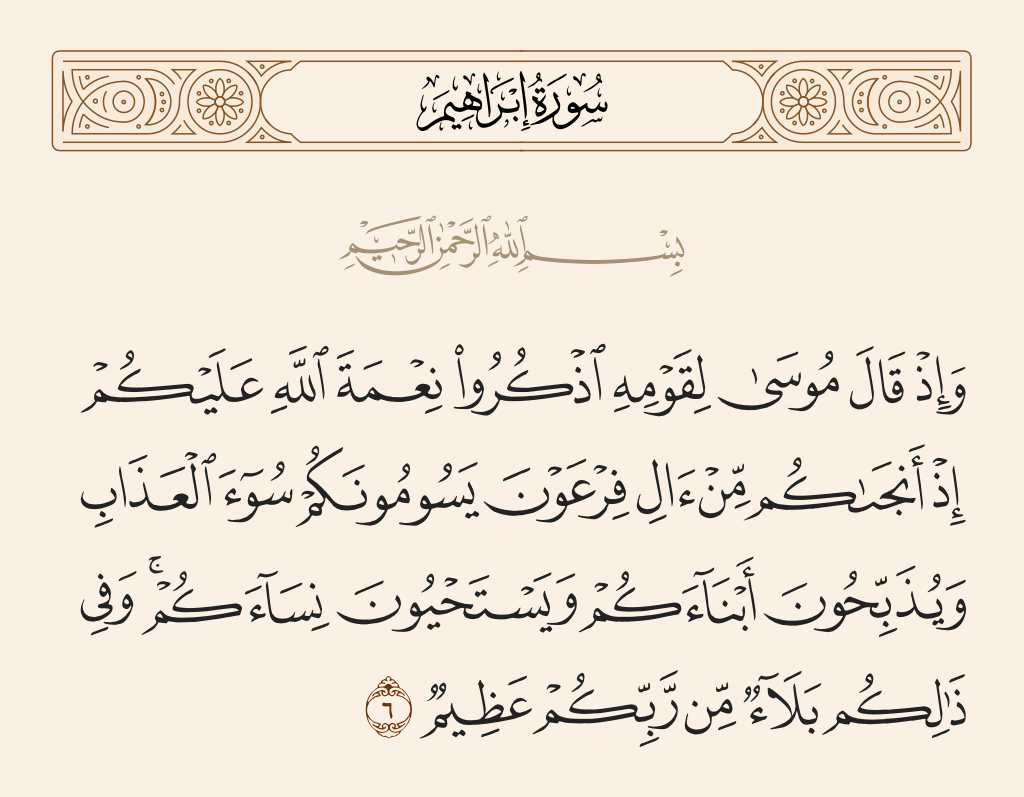 سُورَةُ إِبْرَاهِيمَ
بِسْمِ ٱللَّهِ ٱلرَّحْمَٰنِ ٱلرَّحِيمِ
وَإِذْ قَالَ مُوسَىٰ لِقَوْمِهِ ٱذْكُرُوا۟ نِعْمَةَ ٱللَّهِ عَلَيْكُمْ
إِذْ أَنجَىٰكُم مِّنْ ءَالِ فِرْعَوْنَ يَسُومُونَكُمْ سُوٓءَ ٱلْعَذَابِ
وَيُذَبِّحُونَ أَبْنَآءَكُمْ وَيَسْتَحْيُونَ نِسَآءَكُمْ ۚ وَفِى
ذَٰلِكُم بَلَآءٌ مِّن رَّبِّكُمْ عَظِيمٌ ٦